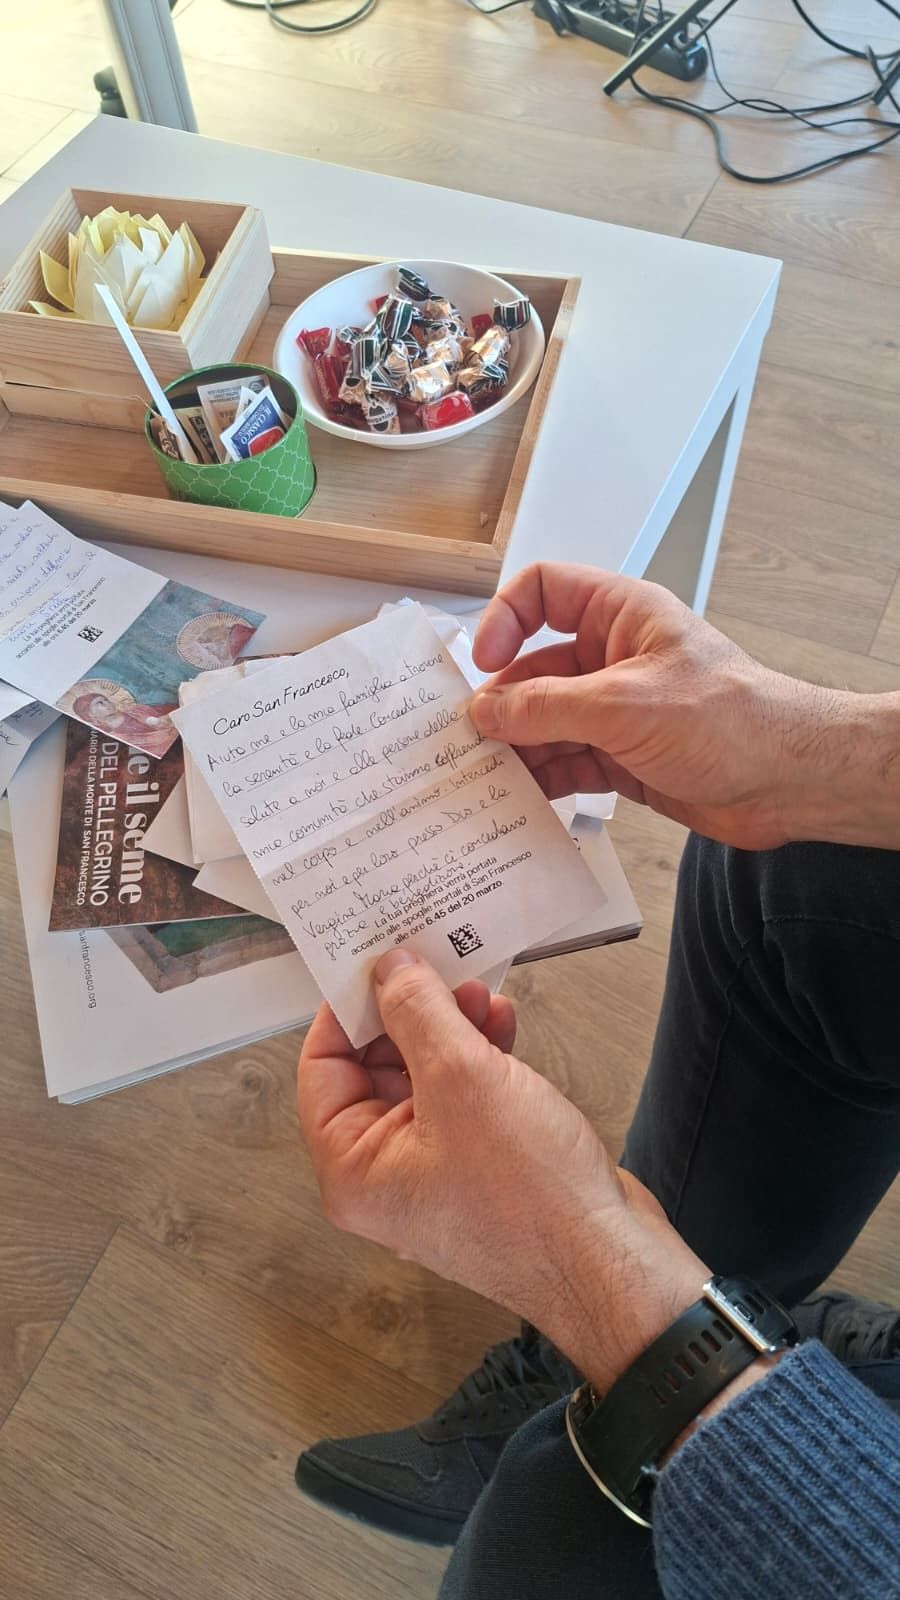 IL CLASSICO
La tua preghiera verrà portata
accanto alle spoglie mortali di San Francesco
alle ore 6.45 del 20 marzo
Caro San Francesco,
Aiuta me e la mia famiglia a trovare
la serenità e la fede. Concedi la
salute a noi e alle persone della
mia comunità che stanno soffrendo
nel corpo e nell'animo. Intercedi
per noi e per loro presso Dio e la
Vergine Maria perchè ci concediano
grazia e benedizione.
La tua preghiera verrà portata
accanto alle spoglie mortali di San Francesco
alle ore 6.45 del 20 marzo
e il seme
DEL PELLEGRINO
NARIO DELLA MORTE DI SAN FRANCESCO
sanfrancesco.org